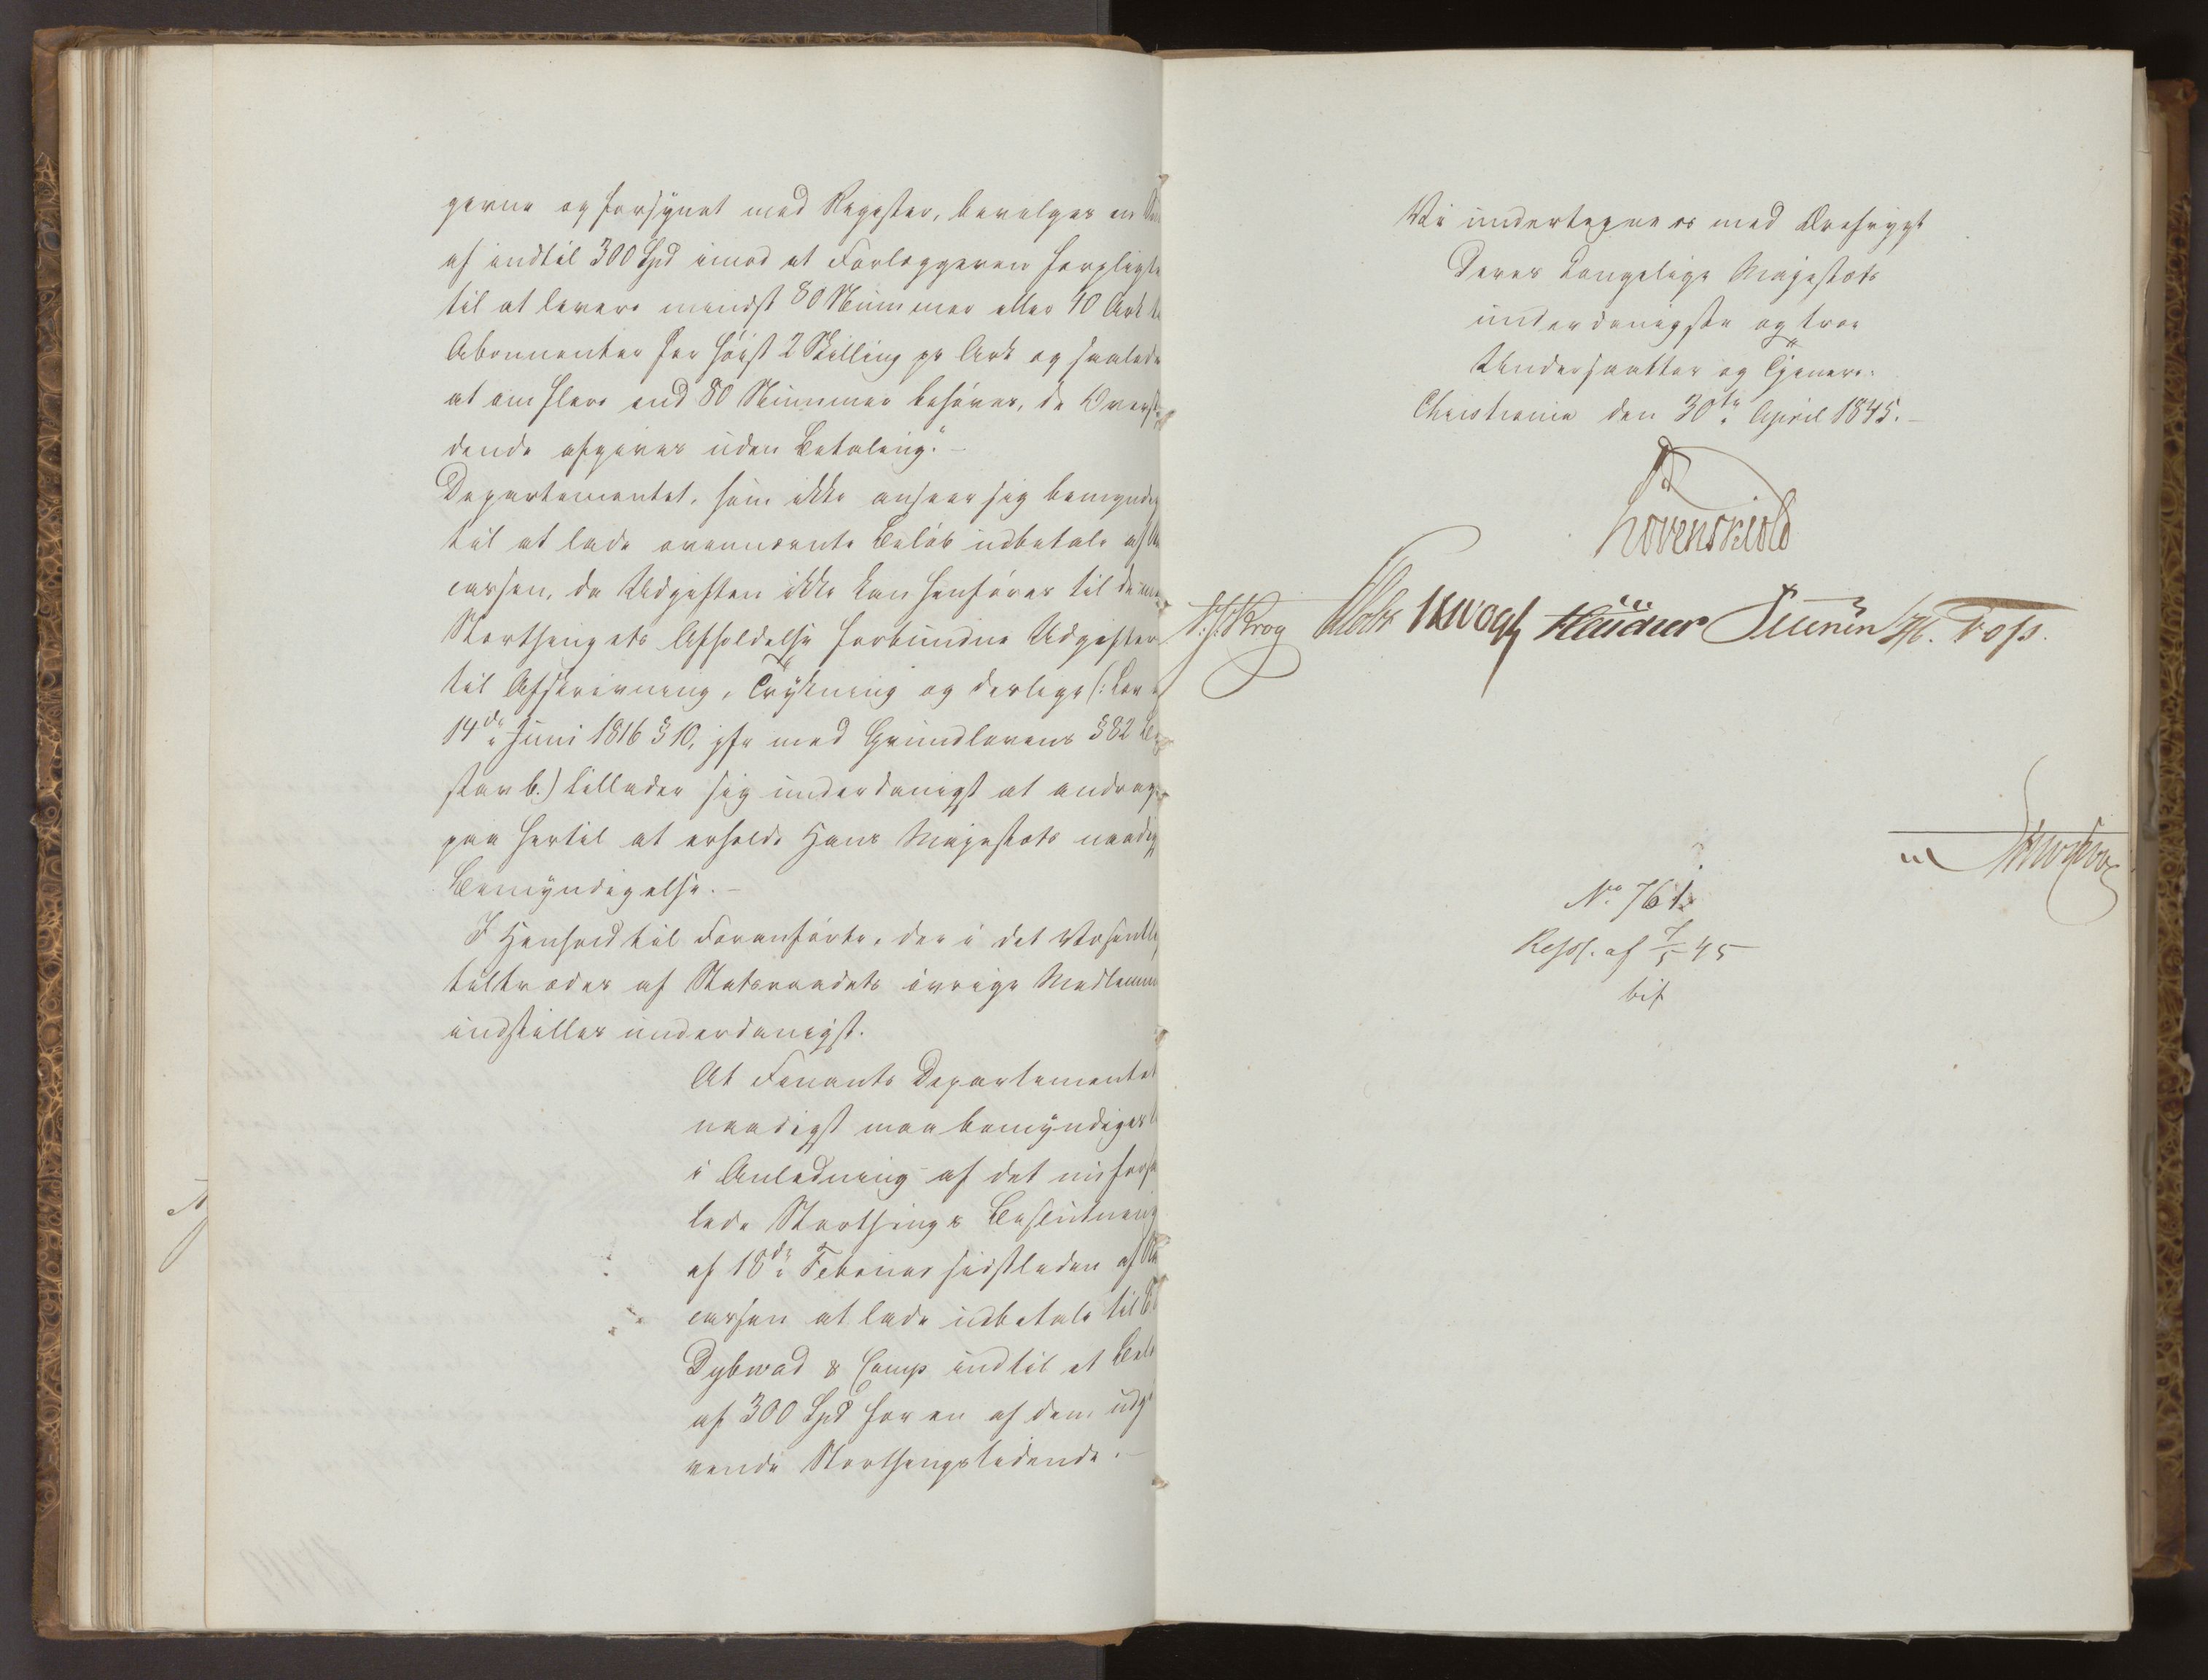 gerne og forsynet med Register, bevilges en
af indtil 300 Spd imod at Forlæggeren forpligte
til at levere mindst 80 Nummer eller 40 Ark
Abonnenter for höist 2 Skilling pr Ark og saalede
at om flere end 80 Nummer behöves, de Overst
dende afgives uden Betaling." -
Departementet, som ikke anseer sig bemyndig
til at lade ovennævnte Belöb udbetale af
cassen, da Udgiften ikke kan henföres til de
Storthingets Afholdelse forbundne Udgifter
til Afskrivning, Trykning og deslige (: Lov
14de Juni 1816 § 10, jfr med Grundlovens § 82
stav b.) tillader sig underdanigst at andrage
paa hertil at erholde Hans Majestæts naadig
Bemyndigelse. -
I Henhold til Foranförte, der i det Væsentli
tiltrædes af Statsraadets övrige Medlemm
indstilles underdanigst.
At Finants Departementet
naadigst maa bemyndiges
i Anledning af det nu forsa
lede Storthings Beslutning
af 18de Februar sidstleden af
cassen at lade udbetale til
Dybwad & Comp indtil et Belö
af 300 Spd for en af dem udgi
vende Storthingstidende. -
Vi undertegne os med Ærefrygt
Deres Kongelige Majestæts
underdanigste og troe
Undersaatter og Tjenere.
Christiania den 30te April 1845. -
Lövenskiold
Krog Vogt Foss.
No 761.
Resol. af 7/5 45
bif